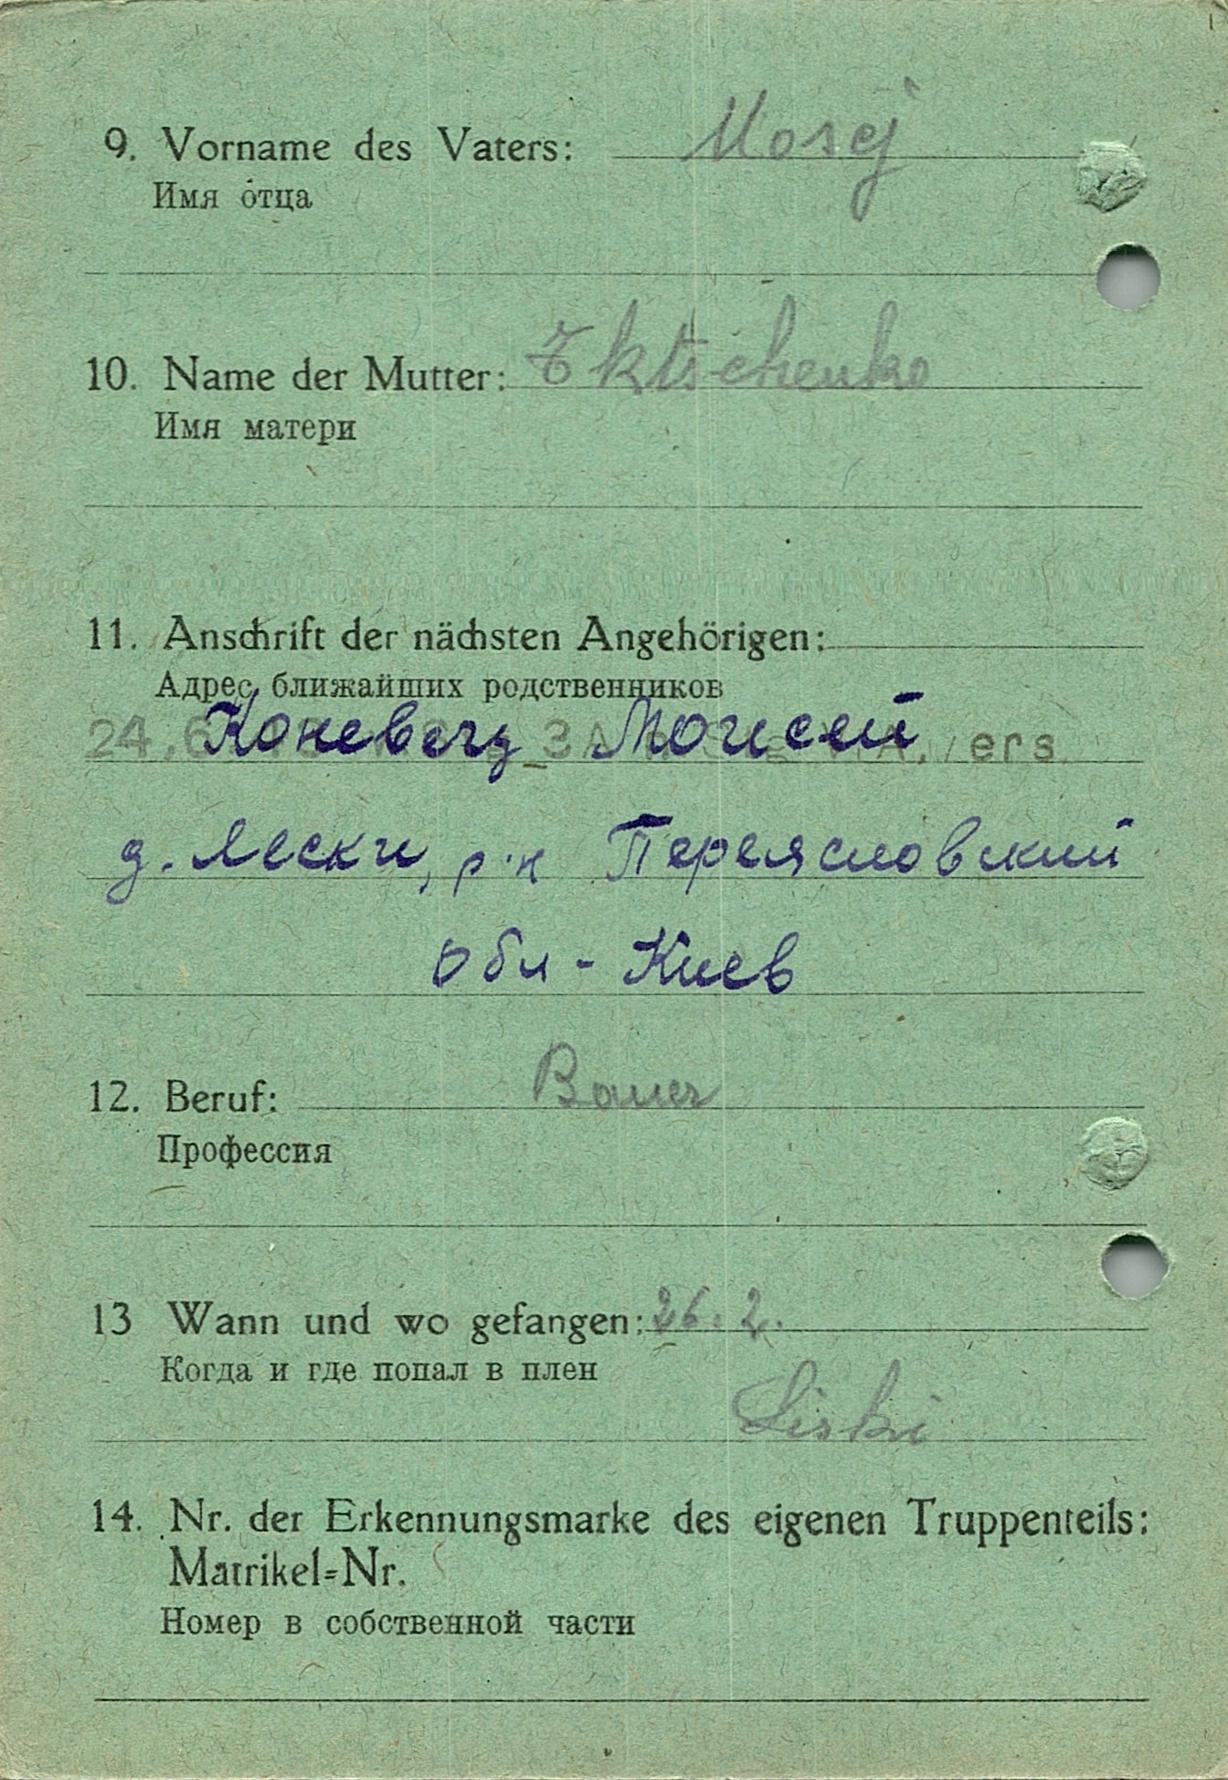 9. Vorname des Vaters: Mosej
Имя отца
10. Name der Mutter: Tktschenko
Имя матери
11. Anschrift der nächsten Angehörigen:
Адрес ближайших родственников
Коневегз Моисей
д. Лески, р-н Переясловский
обл - Киев
12. Beruf: Bauer
Профессия
13 Wann und wo gefangen: 26. 2.
Когда и где попал в плен
Liski
14. Nr. der Erkennungsmarke des eigenen Truppenteils:
Matrikel-Nr.
Номер в собственной части